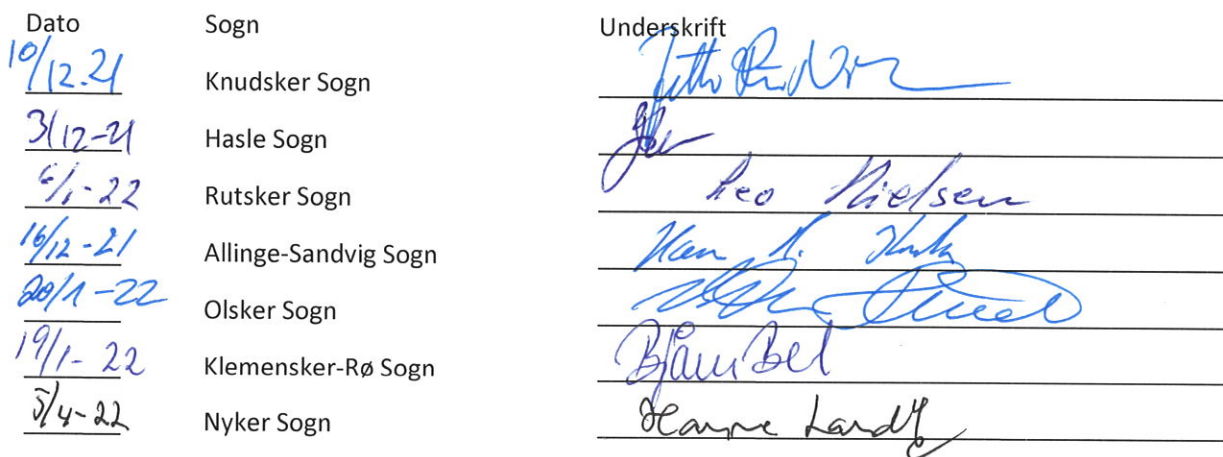 Dato Sogn Underskrift
10/12-21 Knudsker Sogn
3/12-21 Hasle Sogn
6/1-22 Rutsker Sogn Leo Nielsen
16/12-21 Allinge-Sandvig Sogn
20/1-22 Olsker Sogn
19/1-22 Klemensker-Rø Sogn
5/4-22 Nyker Sogn Hanne